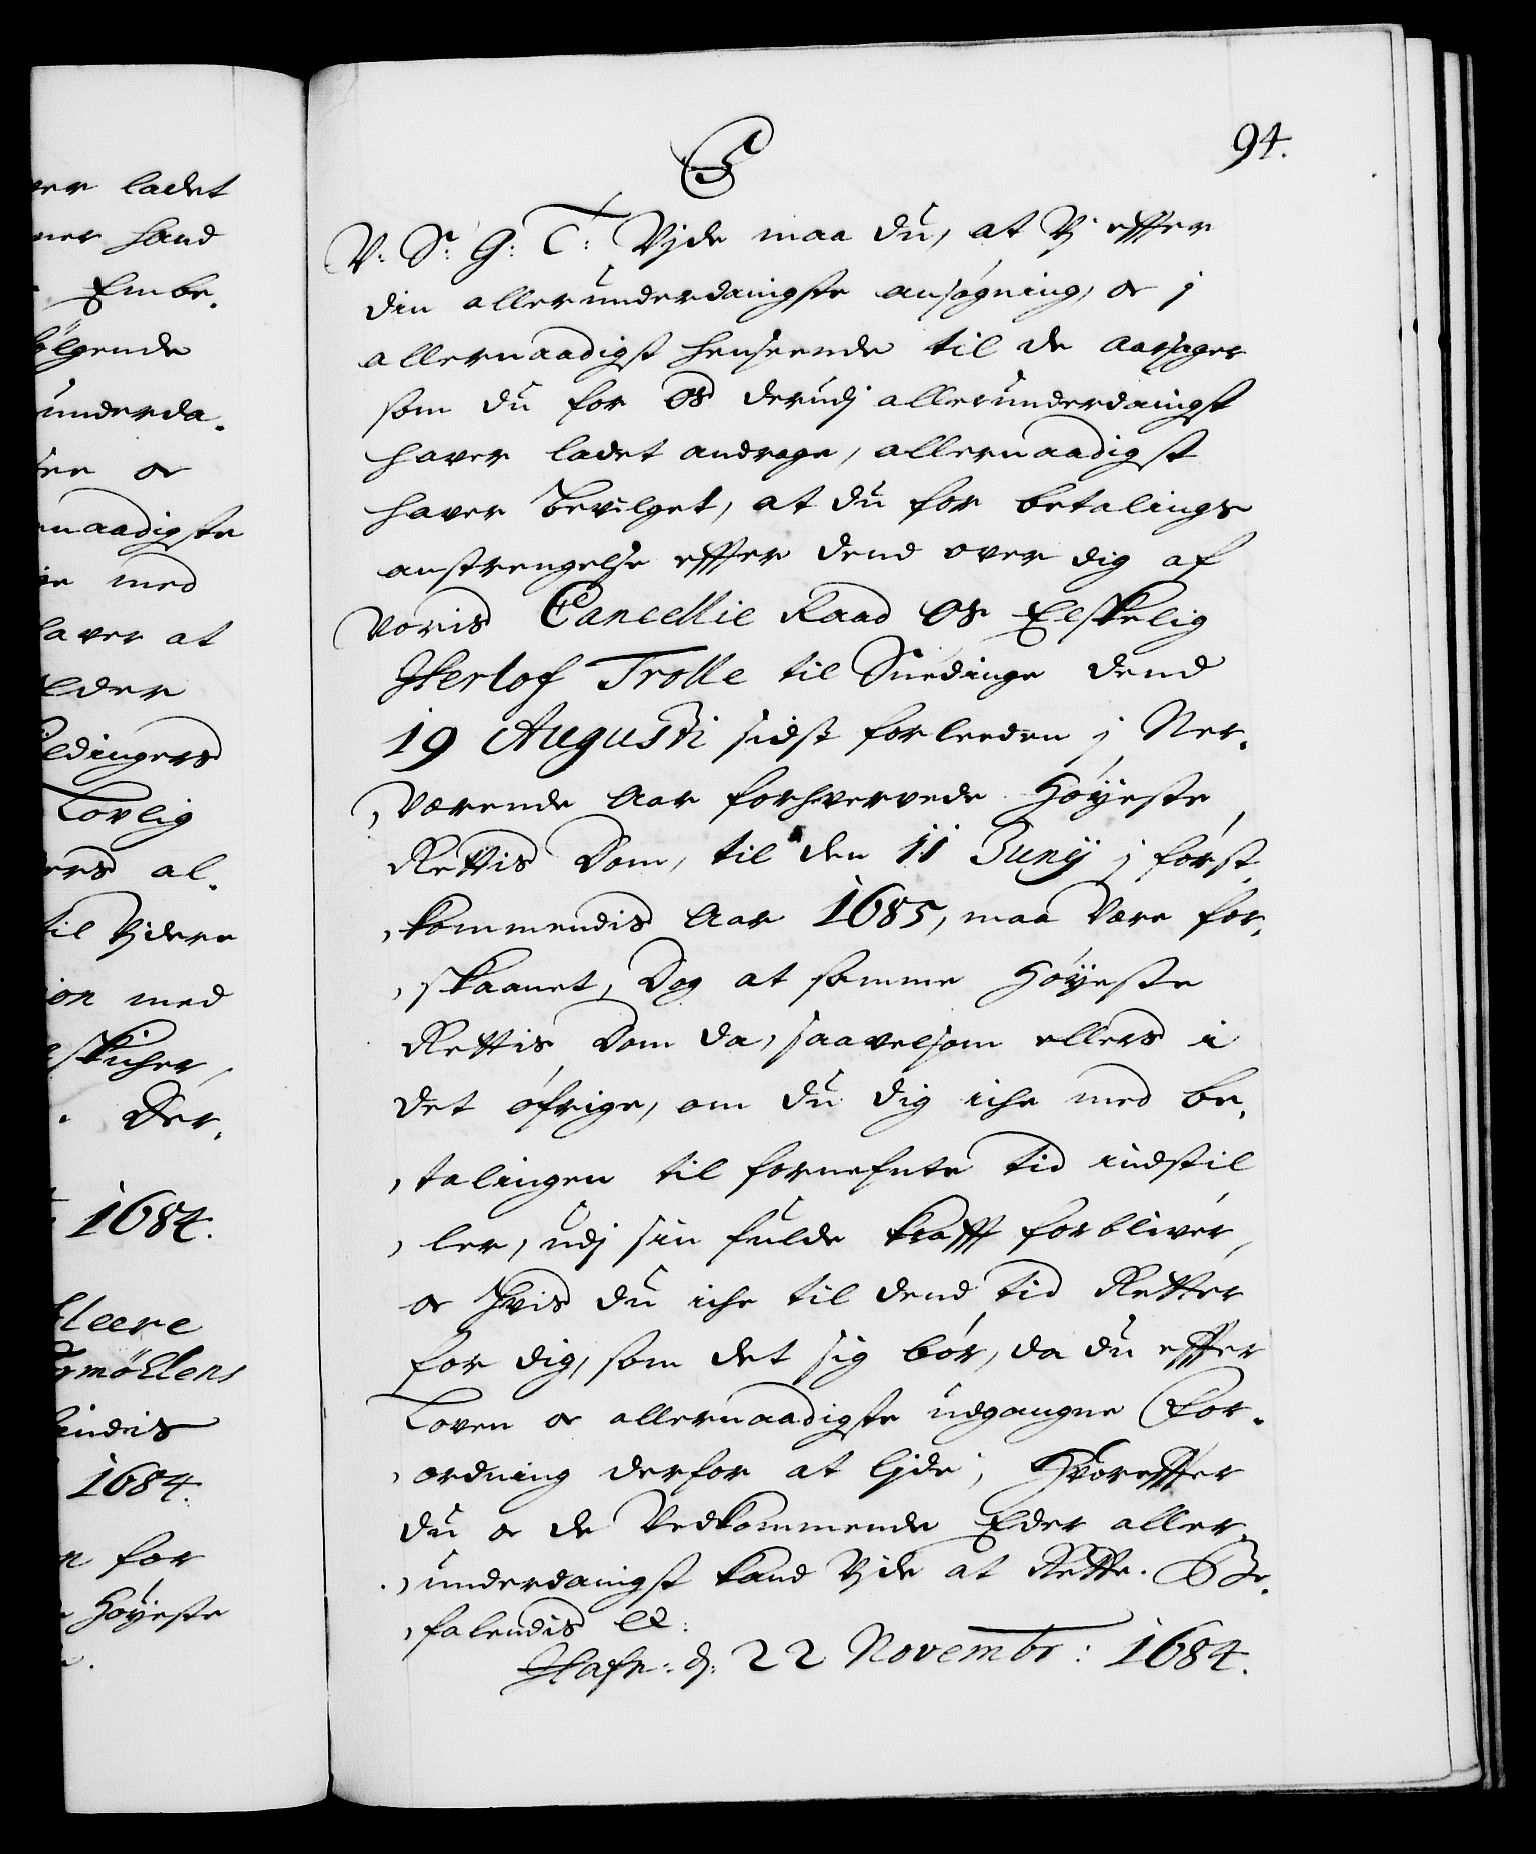 ver ladet
mer hand
Embe,
følgende
underda,
see oc
naadigste
ge med
haver at
Eder
ldingers
Lovlig
ers al,
til Vjdere
ion med
skicher,
Der,
1684.
Cleere
møllens
indis
1684.
n for
Høyeste
94.
C5
V: Sr G: T: Vjde maa du, at Vj effter
din allerunderdanigste ansøgning, oc j
allernaadigst henseende til de aarsager
som du for os derudj allerunderdanigst
haver ladet andrage, allernaadigst
haver bevilget, at du for betalings
anstrengelse effter dend over dig af
Voris Cancellie Raad Os Elskelig
Herlof Trolle til Snedinge dend
19 Augusti sidst forleeden j Ner,
,værende Aar forhvervede Høyeste
Rettis Dom, til den 11 Junij j først
,kommendis Aar 1685, maa være for,
,skaanet, Dog at samme Høyeste
Rettis Dom da, saavelsom ellers i
det øfrige, om du dig iche med be,
,talingen til fornefnte tid indstil
,ler, udj sin fulde krafft forbliver,
oc hvis du iche til dend tid Retter
for dig, som det sig bør, da du effter
Loven oc allernaadigste udgangne For,
,ordning derfor at ljde, Hvoreffter
du oc de Vedkommende Eder aller,
,underdanigst kand Vjde at Rette. Be,
,falendis etc:
Hafn: d: 22 Novembr: 1684.